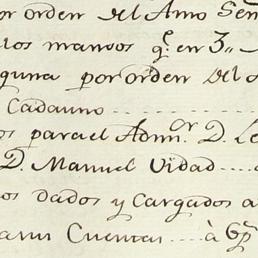 or orden del Amo Señ
los manvos q.e en 3,,
guna por orden del A
Cadauno
os para el Adm.or D. Le
D. Manuel Vidad
os dados y Cargados a
arun Cuentas à